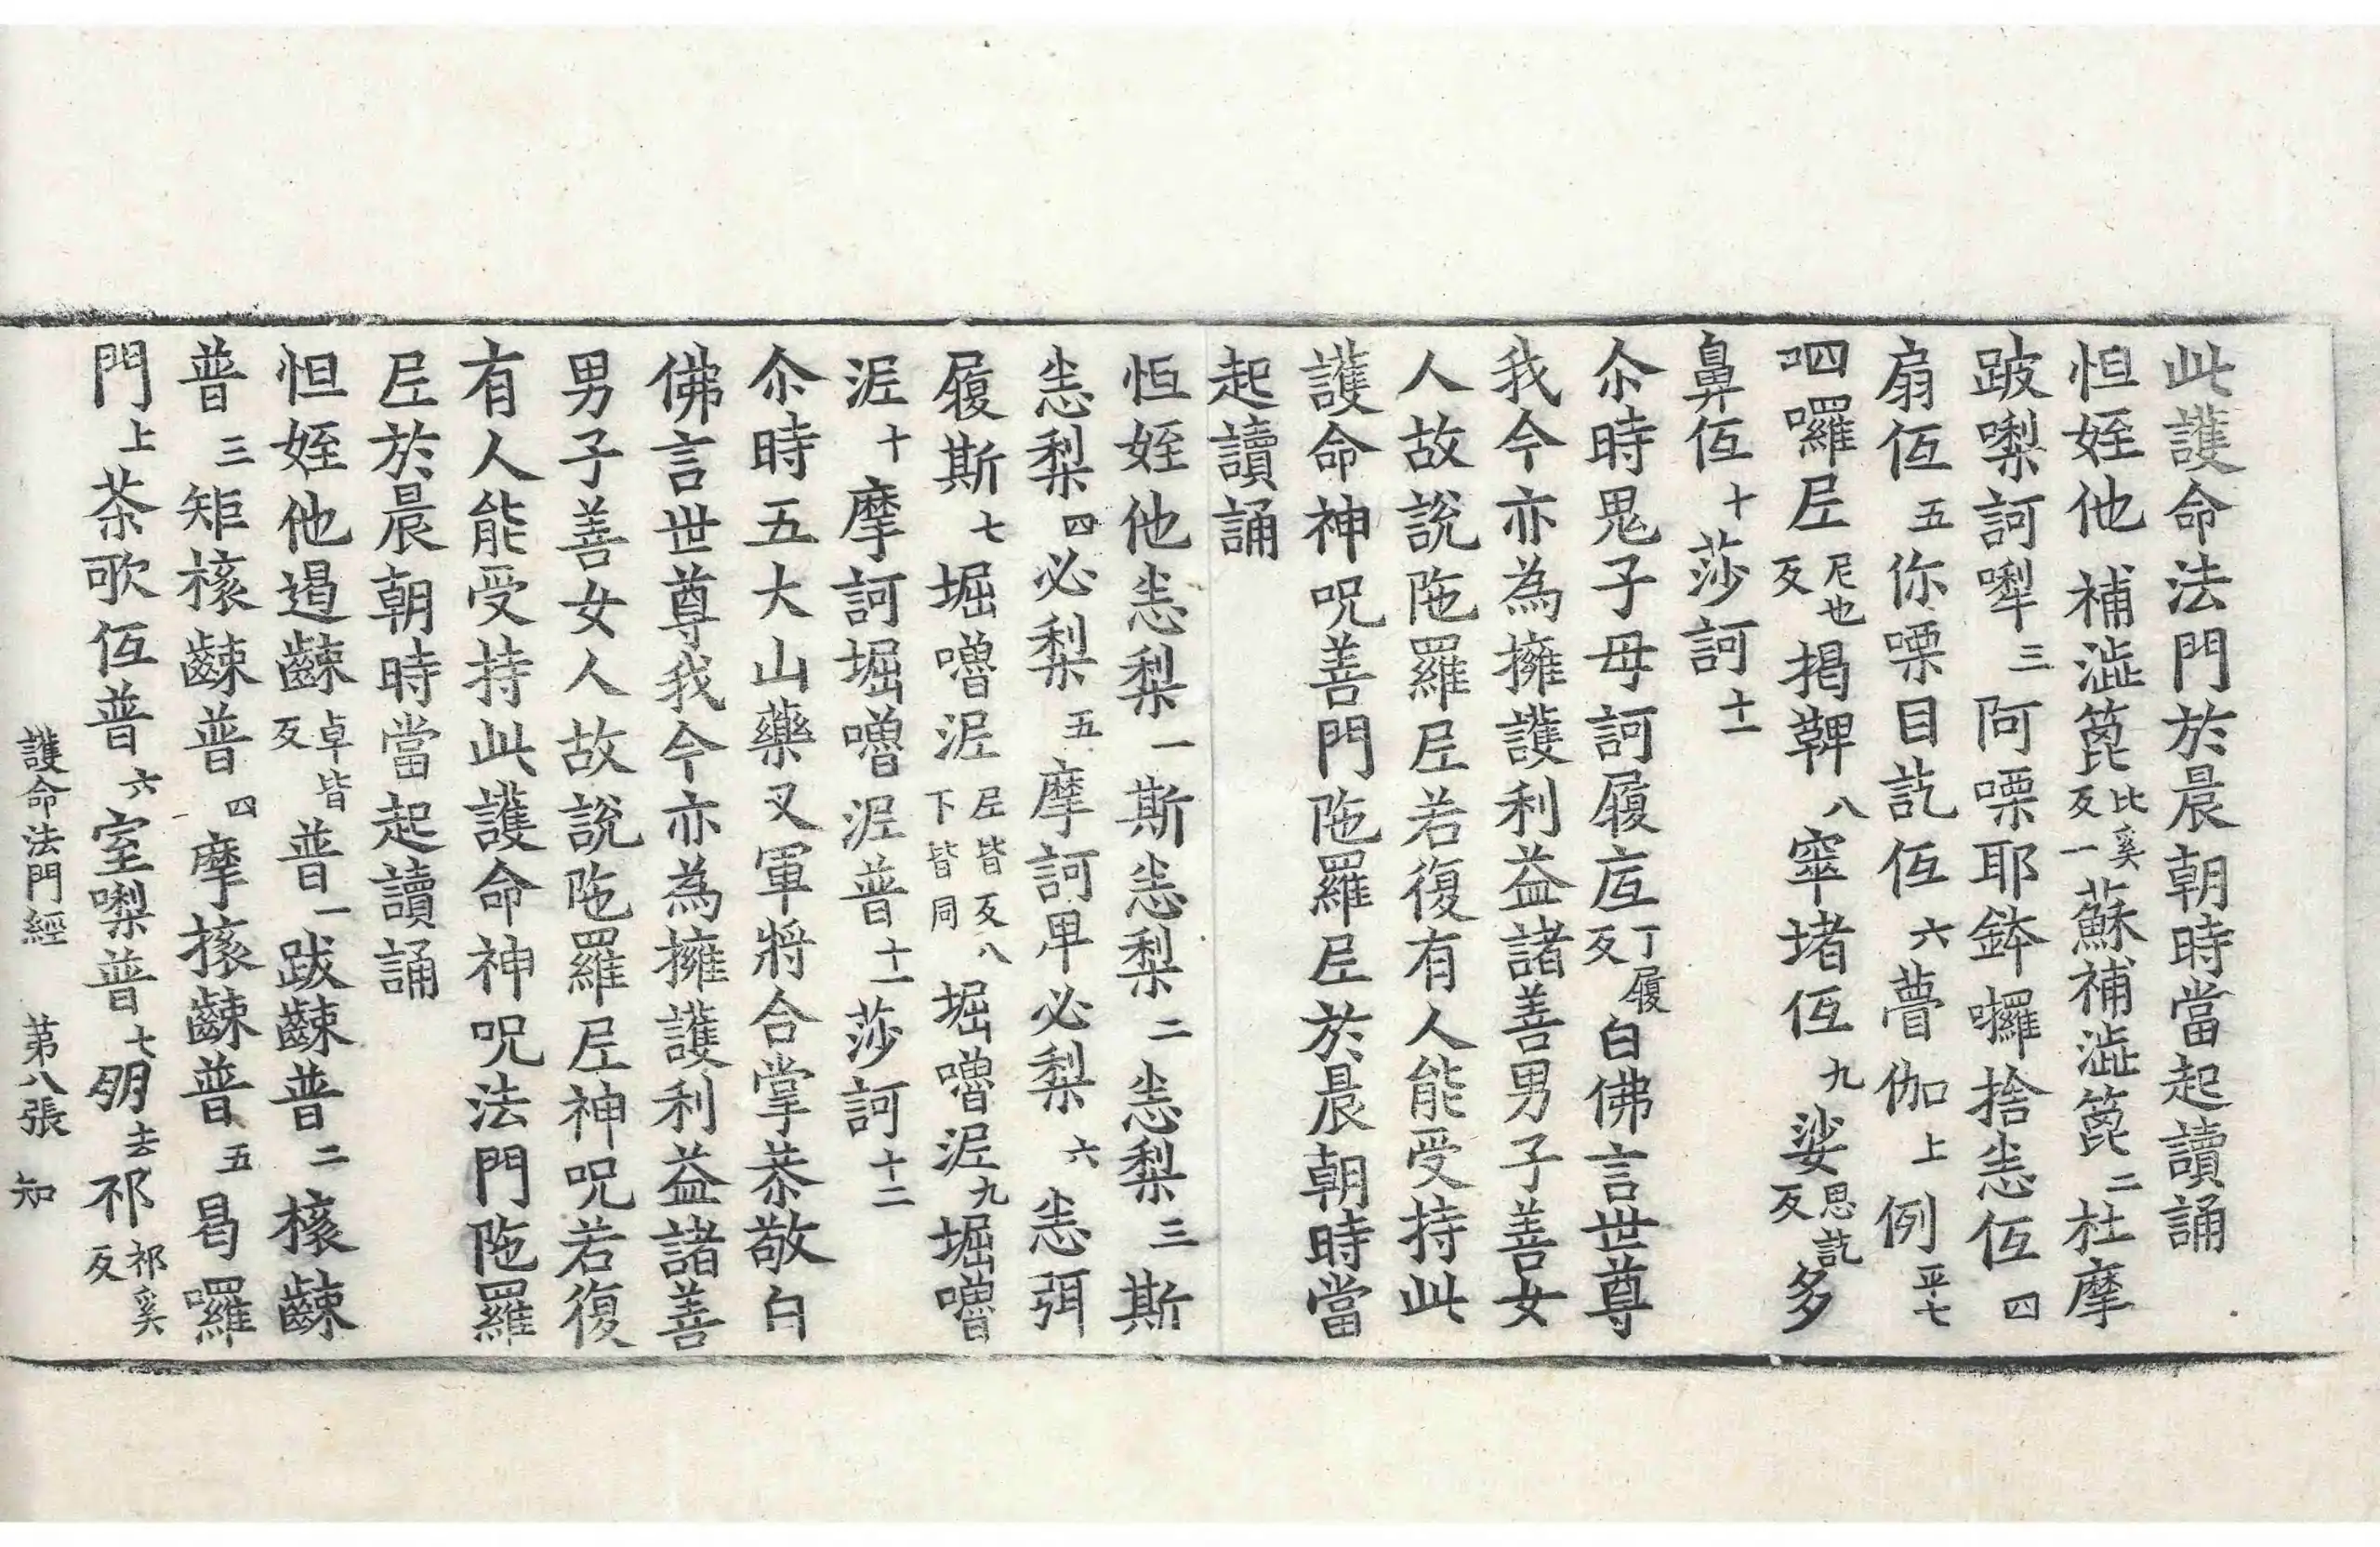 此護命法門於晨朝時當起讀誦
怛姪他補澁篦比奚反一蘇補澁篦二杜摩
跛㗚訶㗚三阿㗚耶鉢囉捨恙伍四
扇伍五你㗚目訖伍六瞢伽上例平七
呬囉𡰱尼也反揭鞞八窣堵伍九娑思訖反多
鼻伍十莎訶十一
尒時鬼子母訶履㡳丁履反白佛言世尊
我今亦為擁護利益諸善男子善女
人故說陁羅𡰱若復有人能受持此
護命神呪善門陁羅𡰱於晨朝時當
起讀誦
怛姪他恙梨一斯恙梨二恙梨三斯
恙梨四必梨五摩訶畢必梨六恙弭
履斯七堀嚕泥𡰱皆反八下皆同堀嚕泥九堀嚕
泥十摩訶堀嚕泥普十一莎訶十二
尒時五大山藥叉軍將合掌恭敬白
佛言世尊我今亦為擁護利益諸善
男子善女人故說陁羅𡰱神呪若復
有人能受持此護命神呪法門陁羅
𡰱於晨朝時當起讀誦
怛姪他遏䶜卓皆反普一跋䶜普二㯐䶜
普三矩㯐䶜普四摩㯐䶜普五曷囉
門上荼歌伍普六室㗚普七朙去祁祁奚反
護命法門經 第八張 知